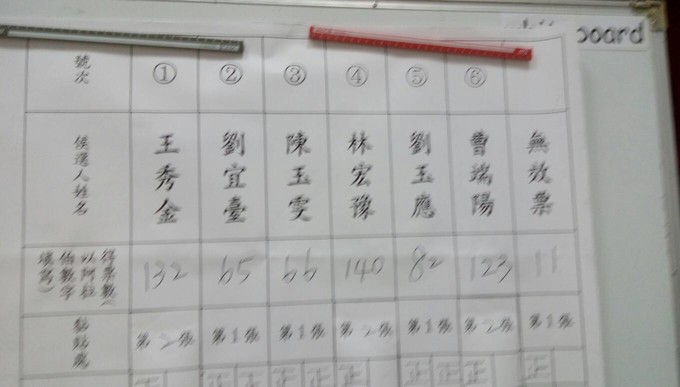 board
號次 ① ② ③ ④ ⑤ ⑥
候選人姓名 王秀金 劉宜臺 陳玉雯 林宏豫 劉玉應 曹端陽 無效票
得票數(以阿拉伯數字填寫) 132 65 66 140 82 123 11
黏貼處 第2張 第1張 第1張 第2張 第1張 第2張 第1張
正 正 正 正 正 正 正 正 正 正